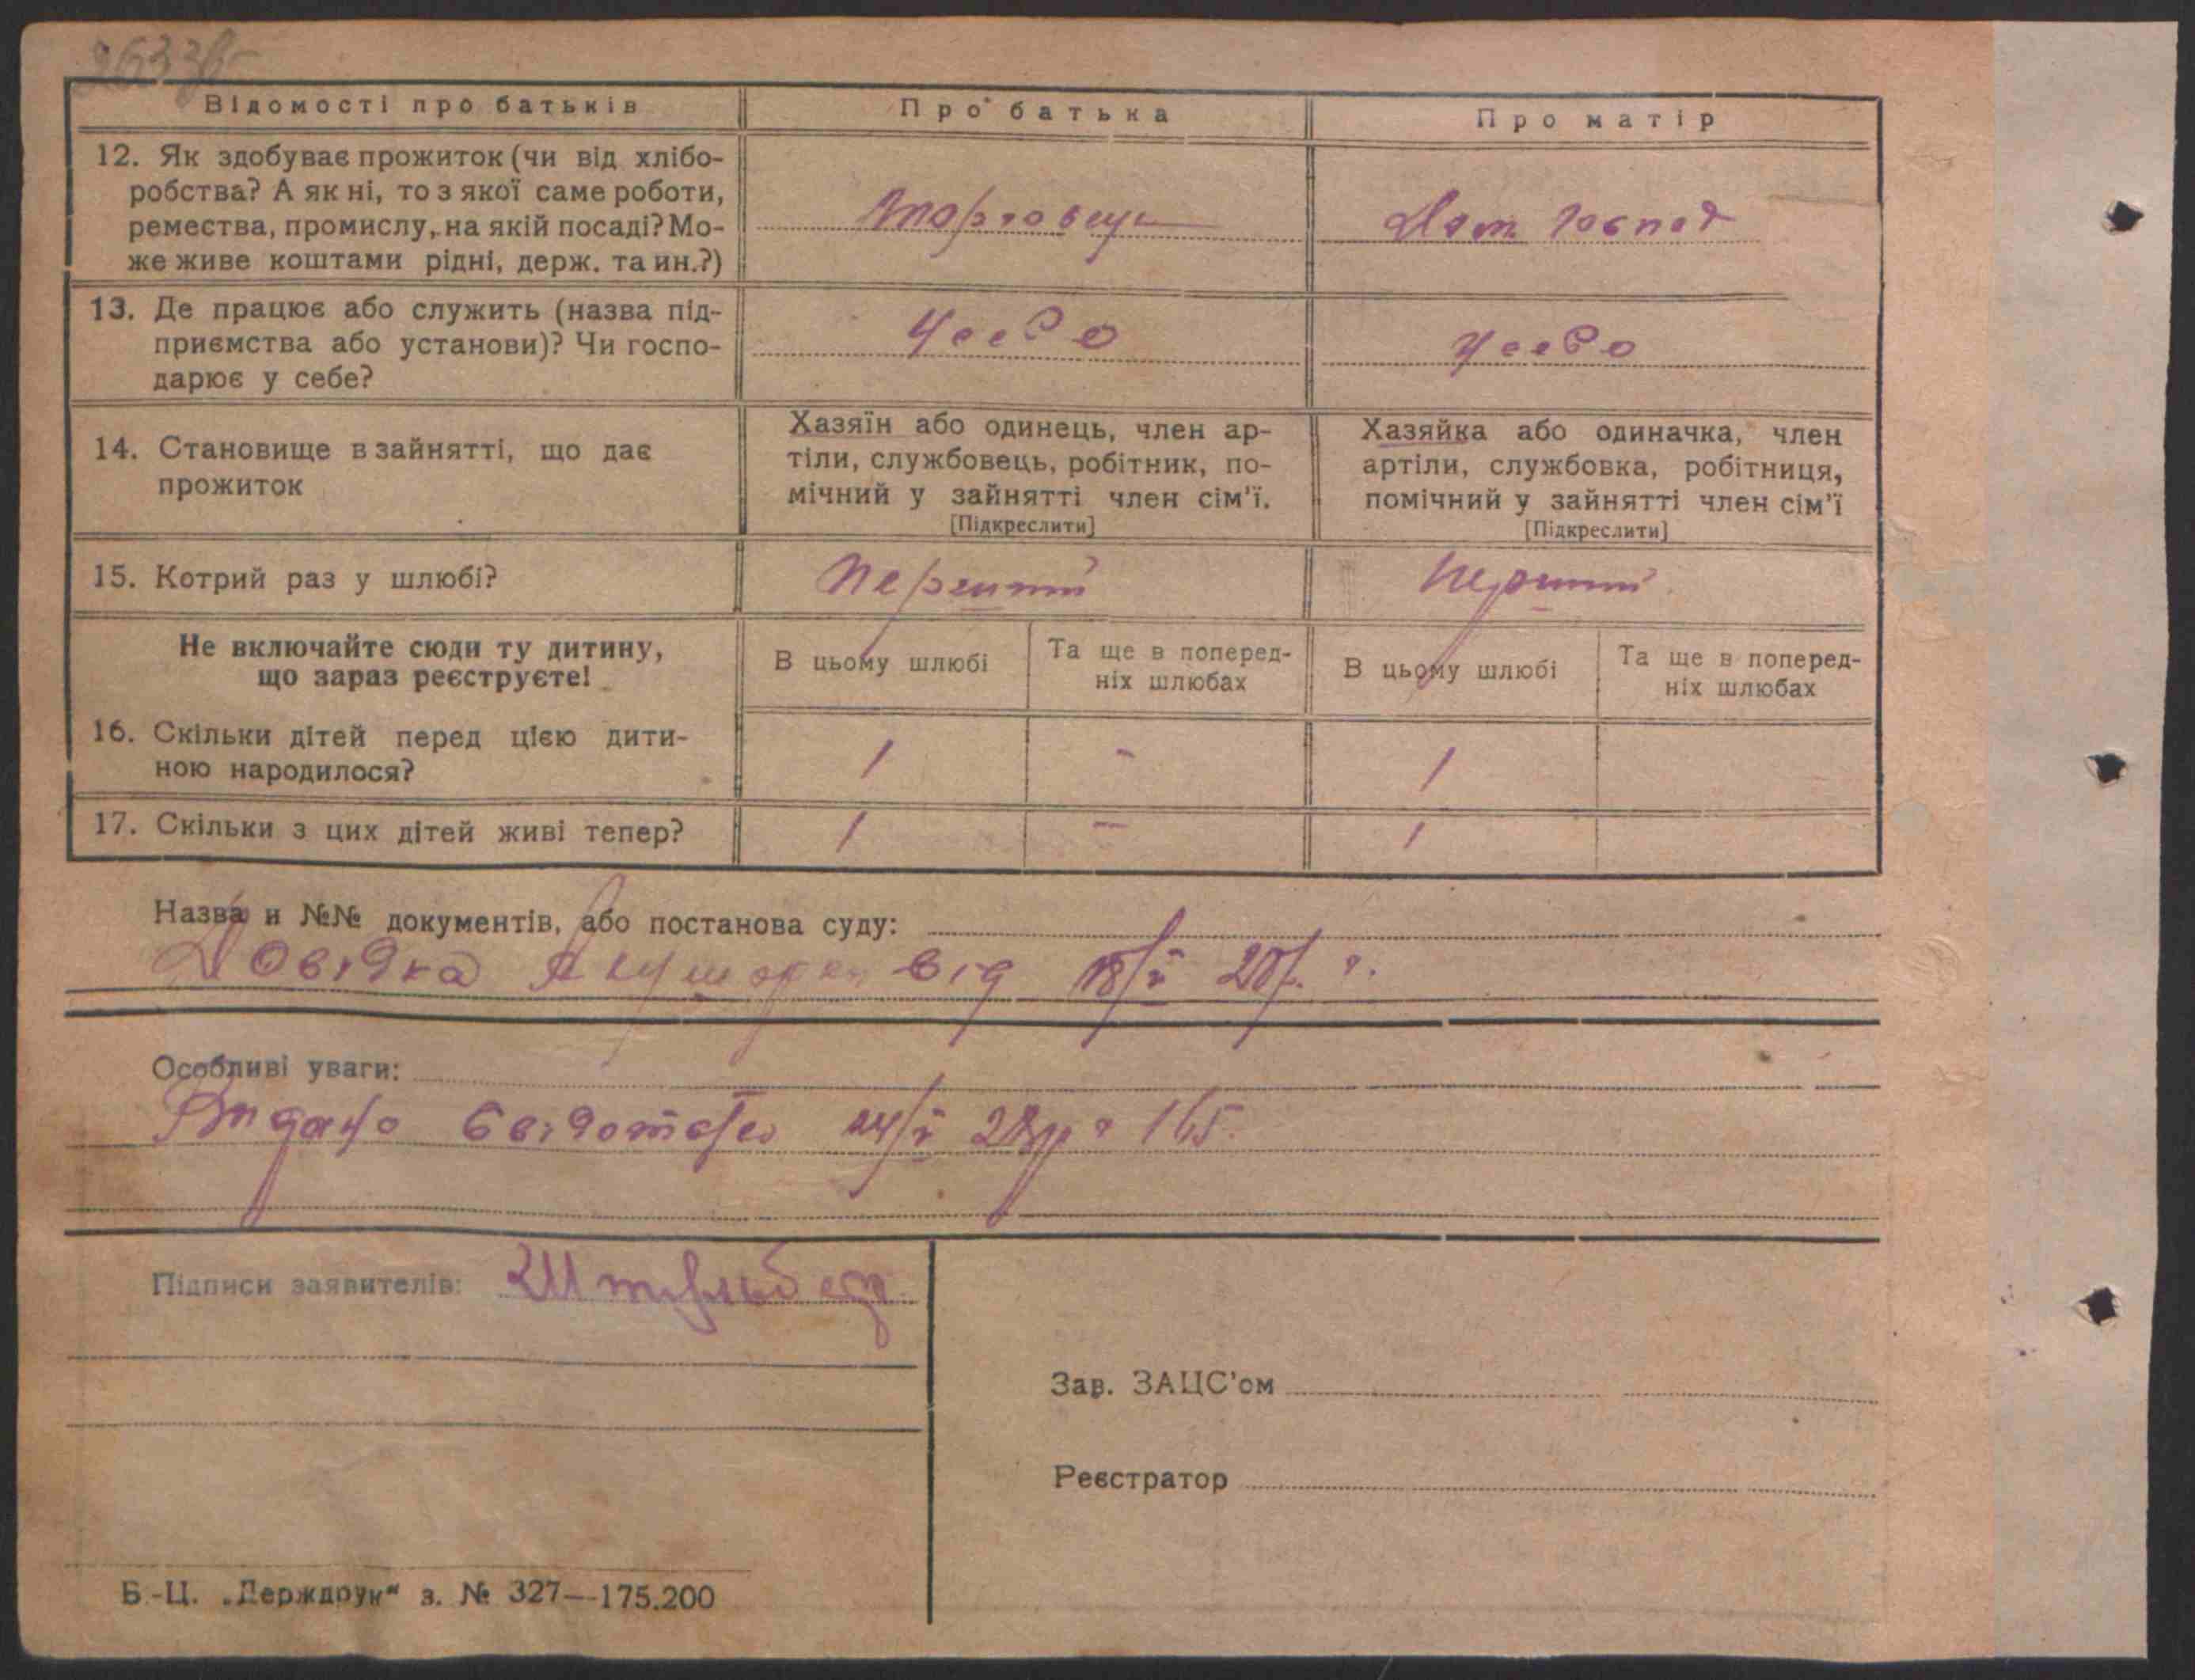 Відомості про батьків
Про батька
Про матір
12. Як здобуває прожиток (чи від хлібо-
робства? А як ні, то з якої саме роботи,
ремества, промислу, на якій посаді? Мо-
же живе коштами рідні, держ. та ин.?)
торговець
Дом. господ
13. Де працює або служить (назва під-
приємства або установи)? Чи госпо-
дарює у себе?
14. Становище в зайнятті, що дає
прожиток
Хазяїн або одинець, член ар-
тіли, службовець, робітник, по-
мічний у зайнятті член сім'ї.
[Підкреслити]
Хазяйка або одиначка, член
артіли, службовка, робітниця,
помічний у зайнятті член сім'ї
[Підкреслити]
15. Котрий раз у шлюбі?
перший
перший
Не включайте сюди ту дитину,
що зараз реєструєте!
В цьому шлюбі
Та ще в поперед-
ніх шлюбах
В цьому шлюбі
Та ще в поперед-
ніх шлюбах
16. Скільки дітей перед цією дити-
ною народилося?
1
-
1
17. Скільки з цих дітей живі тепер?
1
-
1
Назва и №№ документів, або постанова суду:
Довідка Акушерки від 18/V 28 р.
Особливі уваги:
Видано 24/V 28 р 165.
Підписи заявителів:
Зав. ЗАЦС'ом
Реєстратор
Б-Ц. „Держдрук“ з. № 327—175.200